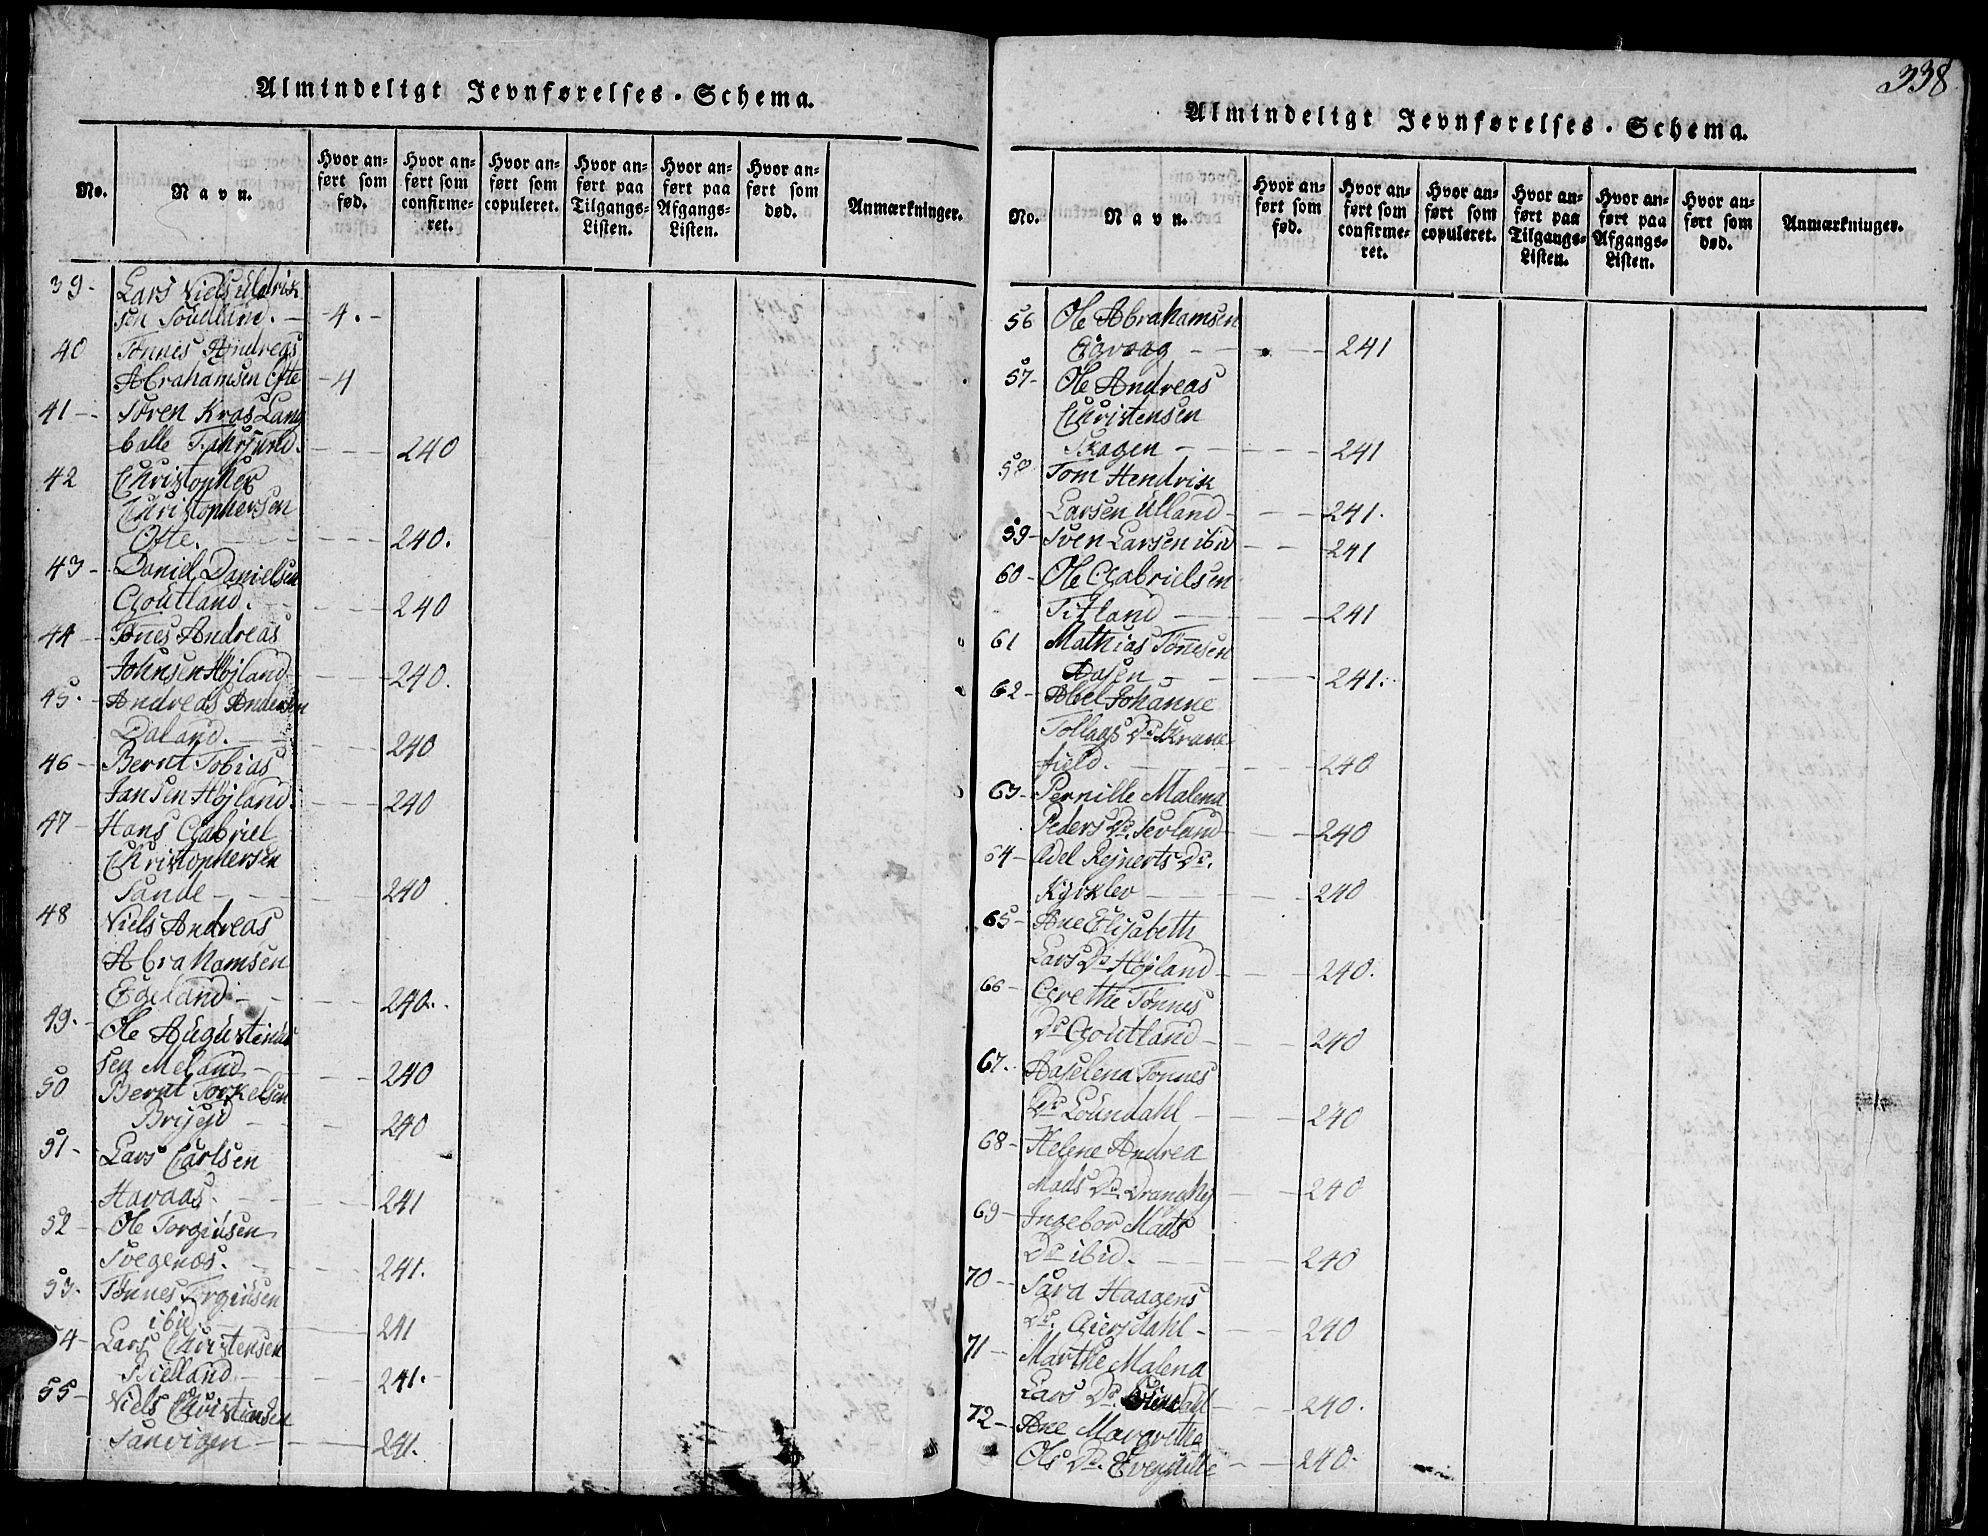 Almindeligt Jevnførelses-Schema.
No.
Navn.
Hvor anført som fød.
Hvor anført som confirmeret.
Hvor anført som copuleret.
Hvor anført paa Tilgangs-Listen.
Hvor anført paa Afgangs-Listen.
Hvor anført som død.
Anmærkninger.
39- Lars Niels Uldrik
sen - 4. -
40 Tønnes Andreas
Abrahamsen Ofte - 4
41 - Søren Kras Lang
balle Fahrsund. - 240
42 Christopher
Christophersen
Ofte. - 240.
43 - Daniel Danielsen
Goutland. - 240
44 - Tønes Andreas
Johnsen Højland - 240.
45. - Andreas Andersen
Daland. - 240
46 - Bernt Tobias
Jansen Højland. - 240
47 - Hans Gabriel
Christophersen
Sande - 240
48 Niels Andreas
Abrahamsen
Egeland - 240.
49. - Ole Augustinus
sen Meland - 240
50 Bernt Torkelsen
240
51 - Lars Carlsen
Havaas. - 241
52 - Ole Torgiusen
Svegenæs. - 241.
53. - Tønnes Torgiusen
ibid - 241
54 - Lars Christensen
Bielland - 241.
55 - Niels Christensen
Sanvigen - 241.
338
Almindeligt Jevnførelses-Schema.
No.
Navn.
Hvor anført som fød.
Hvor anført som confirmeret.
Hvor anført som copuleret.
Hvor anført paa Tilgangs-Listen.
Hvor anført paa Afgangs-Listen.
Hvor anført som død.
Anmærkninger.
56 Ole Abrahamsen
Egvaag - 241
57- Ole Andreas
Christensen
Skagen - 241
58 Tom Hendrik
Larsen Ulland - 241.
59 - Sven Larsen ibid - 241
60 - Ole Gabrielsen
Titland - 241
61 Mathias Tønnesen
Aasen - 241.
62 - Abel Johanne
Tollags Dr. Krane-
field. - 240
63 - Pernille Malena
Peders Dr. Sevland - 240
64 - Adel Rejnerts Dr.
Kirklev - 240
65 - Ane Elisabeth
Lars Dr Højland - 240.
66 - Grethe Tønnes
Dr Goutland - 240
67. Aaselena Tønnes
Dr Loundahl - 240
68 - Helene Andrea
Mads Dr. - 240
69 - Ingebor Mads
Dr ibid. - 240
70 - Sara Haagens
Dr. Giersdahl - 240
71 - Marthe Malena
Lars Dr. - 240.
72 - Ane Margrethe
Ols Dr. - 240.